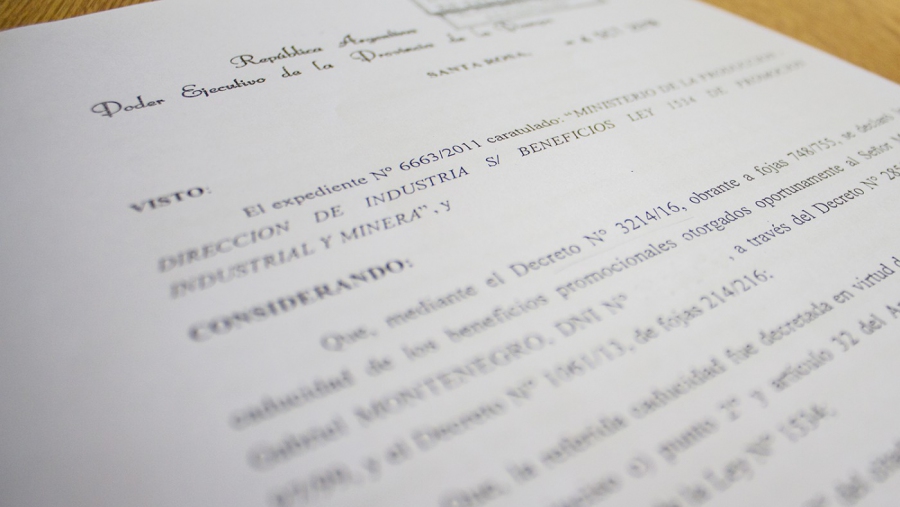 República Argentina
Poder Ejecutivo de la Provincia de la Pampa
SANTA ROSA, - 4 OCT 2018
VISTO:
El expediente Nº 6663/2011 caratulado: "MINISTERIO DE LA PRODUCCION
DIRECCION DE INDUSTRIA S/ BENEFICIOS LEY 1534 DE PROMOCION
INDUSTRIAL Y MINERA", y
CONSIDERANDO:
Que, mediante el Decreto Nº 3214/16, obrante a fojas 748/755, se declaró
caducidad de los beneficios promocionales otorgados oportunamente al Señor
Gabriel MONTENEGRO, DNI Nº , a través del Decreto Nº
y el Decreto Nº 1061/13, de fojas 214/216;
Que, la referida caducidad fue decretada en virtud
punto 2º y artículo 32 del
de la Ley Nº 1534;